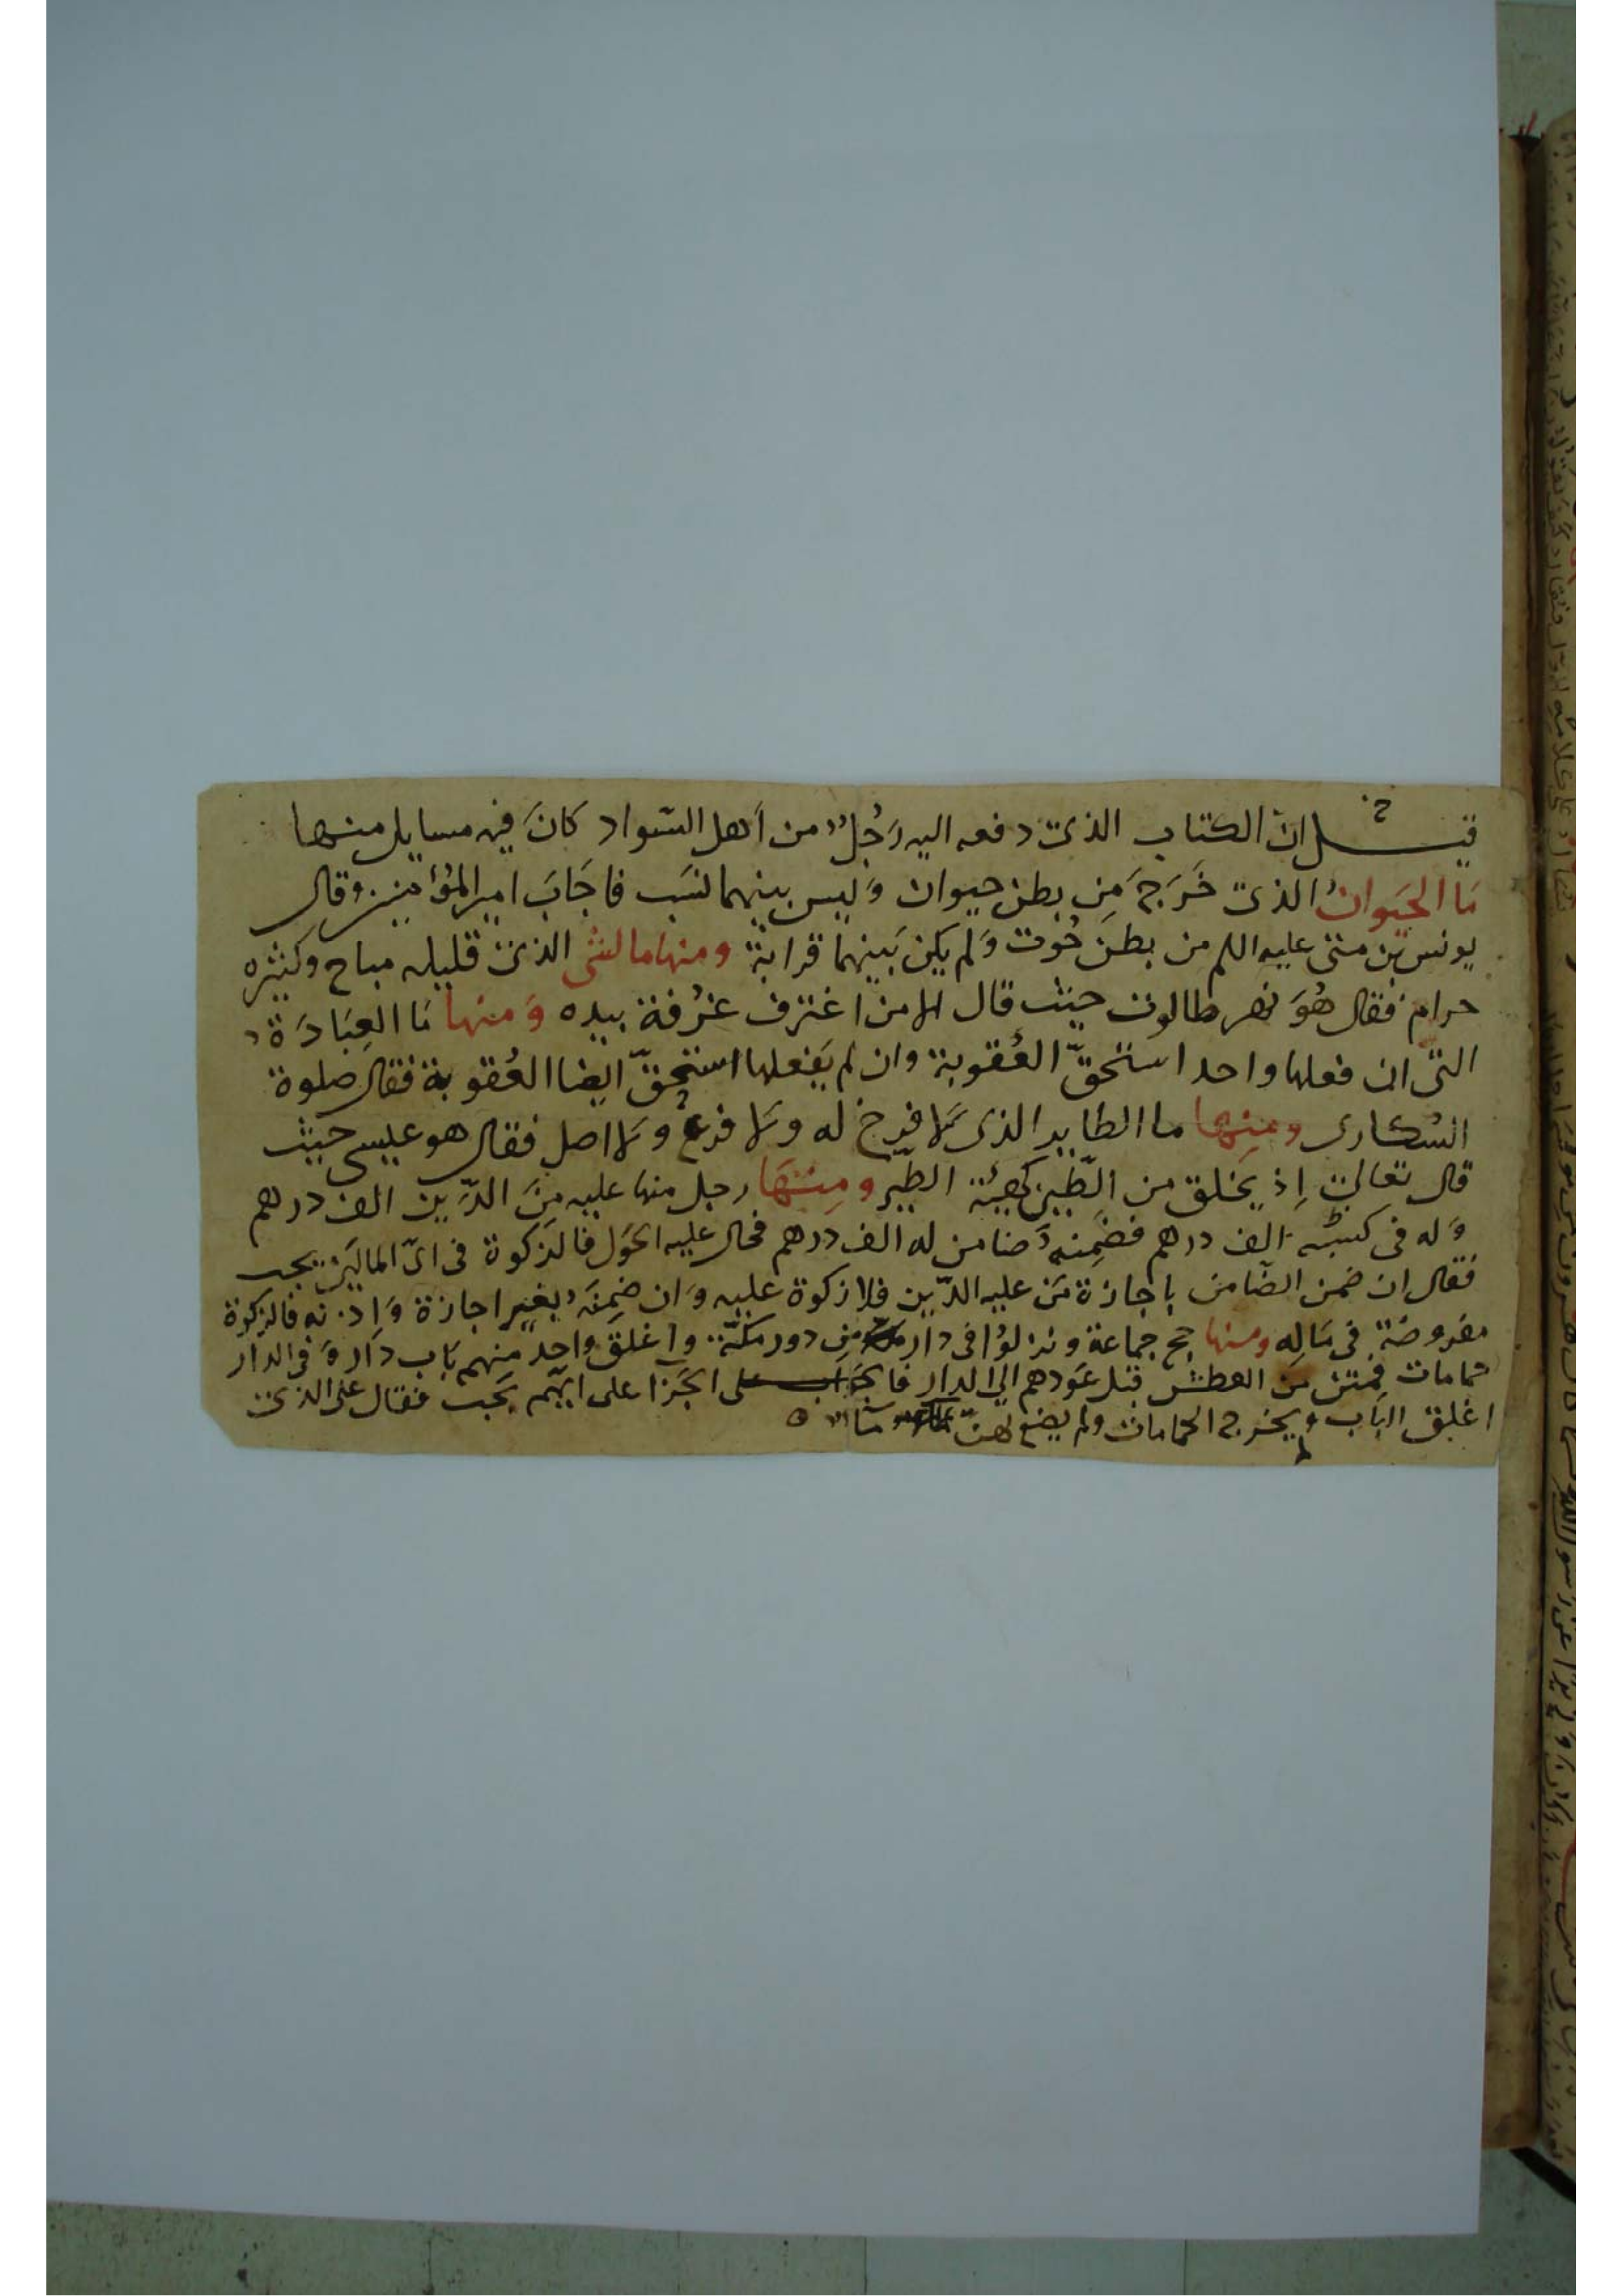 قيل ان الكتاب الذى دفعه اليه رَجُلٌ من أهل السَّواد كانَ فيه مسايل منها
مَا الحَيَوانُ الذى خَرَجَ مِن بطن حيوان وَليس بينهما نسَب فاجَابَ امير المؤمنين وقال
يونس بن متى عليه السلم من بطن حُوت وَلم يكن بَينهما قرابة ومنها ما الشى الذى قليله مباح وكثيره
حرام فقال هُوَ نهر طالوت حيث قال الا من اغترف غرُفة بيده وَمنها مَا العِبَادَة
التى ان فعلها واحد استحقّ العُقوبة وان لم يَفعلها استحقّ ايضا العُقوبة فقال صلوة
السُكارى ومِنها ما الطاير الذى لا فرخ له ولا فرع ولا اصل فقال هو عيسى حيث
قال تعالى اِذ يَخلق من الطّين كهيئة الطّير ومِنهَا رجل منها عليه مِنَ الدَّين الف درهم
وَله فى كيسه الف درهم فضَمِنهُ ضامن له الف درهم فحال عليه الحَول فالزكوة فى اىّ المالَين يجب
فقال ان ضمن الضّامن باجازة مَن عليه الدّين فلا زكوة عليه وَان ضمِنَهُ بغير اجازة وَاذنه فالزكوة
مفروضة فى مَالِه ومنها حج جماعة ونزلوُا فى دار مِن دور مكّة واغلق واحد منهم بَاب دَار وَ فى الدار
حمامات فمتن من العطش قبل عَودهم الى الدار فالجَزا على ايّهم يَجب فقال على الذى
اغلق الباب ولم يخرج الحمامات ولم يضع لهنّ مآء